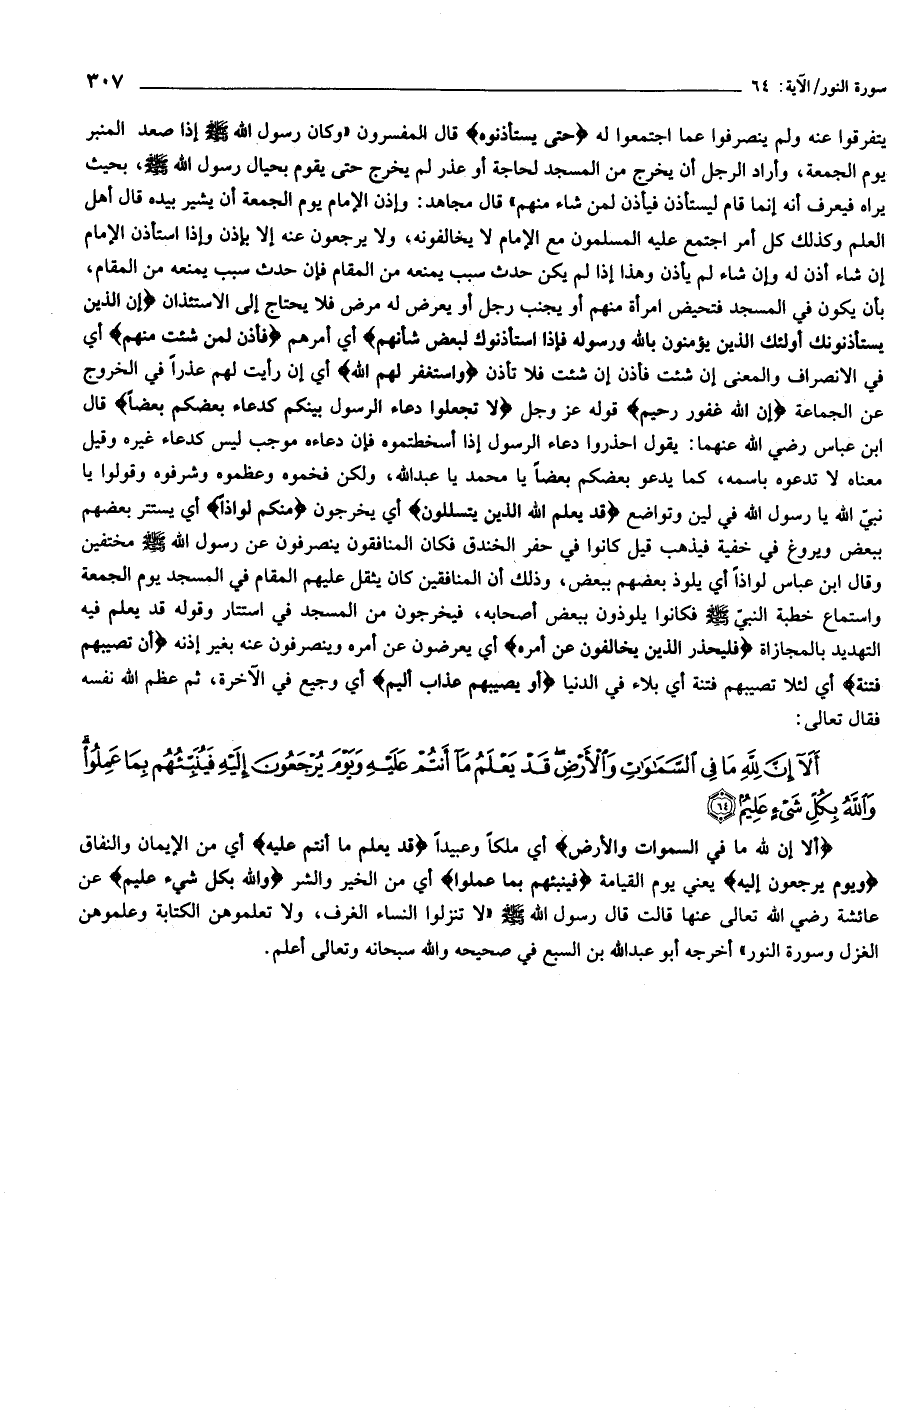 سورة النور/الآية: ٦٤ ٣٠٧
يتفرقوا عنه ولم ينصرفوا عما اجتمعوا له ﴿حتى يستأذنوه﴾ قال المفسرون «وكان رسول الله ﷺ إذا صعد المنبر
يوم الجمعة، وأراد الرجل أن يخرج من المسجد لحاجة أو عذر لم يخرج حتى يقوم بحيال رسول الله ﷺ، بحيث
يراه فيعرف أنه إنما قام ليستأذن فيأذن لمن شاء منهم» قال مجاهد: وإذن الإمام يوم الجمعة أن يشير بيده قال أهل
العلم وكذلك كل أمر اجتمع عليه المسلمون مع الإمام لا يخالفونه، ولا يرجعون عنه إلا بإذن وإذا استأذن الإمام
إن شاء أذن له وإن شاء لم يأذن وهذا إذا لم يكن حدث سبب يمنعه من المقام فإن حدث سبب يمنعه من المقام،
بأن يكون في المسجد فتحيض امرأة منهم أو يجنب رجل أو يعرض له مرض فلا يحتاج إلى الاستئذان ﴿إن الذين
يستأذنونك أولئك الذين يؤمنون بالله ورسوله فإذا استأذنوك لبعض شأنهم﴾ أي أمرهم ﴿فأذن لمن شئت منهم﴾ أي
في الانصراف والمعنى إن شئت فأذن إن شئت فلا تأذن ﴿واستغفر لهم الله﴾ أي إن رأيت لهم عذراً في الخروج
عن الجماعة ﴿إن الله غفور رحيم﴾ قوله عز وجل ﴿لا تجعلوا دعاء الرسول بينكم كدعاء بعضكم بعضاً﴾ قال
ابن عباس رضي الله عنهما: يقول احذروا دعاء الرسول إذا أسخطتموه فإن دعاءه موجب ليس كدعاء غيره وقيل
معناه لا تدعوه باسمه، كما يدعو بعضكم بعضاً يا محمد يا عبدالله، ولكن فخموه وعظموه وشرفوه وقولوا يا
نبيّ الله يا رسول الله في لين وتواضع ﴿قد يعلم الله الذين يتسللون﴾ أي يخرجون ﴿منكم لواذاً﴾ أي يستتر بعضهم
ببعض ويروغ في خفية فيذهب قيل كانوا في حفر الخندق فكان المنافقون ينصرفون عن رسول الله ﷺ مختفين
وقال ابن عباس لواذاً أي يلوذ بعضهم ببعض، وذلك أن المنافقين كان يثقل عليهم المقام في المسجد يوم الجمعة
واستماع خطبة النبيّ ﷺ فكانوا يلوذون ببعض أصحابه، فيخرجون من المسجد في استتار وقوله قد يعلم فيه
التهديد بالمجازاة ﴿فليحذر الذين يخالفون عن أمره﴾ أي يعرضون عن أمره وينصرفون عنه بغير إذنه ﴿أن تصيبهم
فتنة﴾ أي لئلا تصيبهم فتنة أي بلاء في الدنيا ﴿أو يصيبهم عذاب أليم﴾ أي وجيع في الآخرة، ثم عظم الله نفسه
فقال تعالى:
أَلَآ إِنَّ لِلَّهِ مَا فِى ٱلسَّمَٰوَٰتِ وَٱلْأَرْضِ ۖ قَدْ يَعْلَمُ مَآ أَنتُمْ عَلَيْهِ وَيَوْمَ يُرْجَعُونَ إِلَيْهِ فَيُنَبِّئُهُم بِمَا عَمِلُوا۟ ۗ
وَٱللَّهُ بِكُلِّ شَىْءٍ عَلِيمٌۢ ﴿٦٤﴾
﴿ألا إن لله ما في السموات والأرض﴾ أي ملكاً وعبيداً ﴿قد يعلم ما أنتم عليه﴾ أي من الإيمان والنفاق
﴿ويوم يرجعون إليه﴾ يعني يوم القيامة ﴿فينبئهم بما عملوا﴾ أي من الخير والشر ﴿والله بكل شيء عليم﴾ عن
عائشة رضي الله تعالى عنها قالت قال رسول الله ﷺ «لا تنزلوا النساء الغرف، ولا تعلموهن الكتابة وعلموهن
الغزل وسورة النور» أخرجه أبو عبدالله بن السبع في صحيحه والله سبحانه وتعالى أعلم.